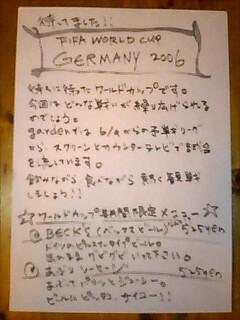 待ってました!!
FIFA WORLD CUP
GERMANY 2006
待ちに待ったワールドカップです。
今回はどんな戦いが繰り広げられる
のでしょう。
gardenでは 6/9からの予選リーグ
から スクリーンとカウンターテレビで試合
を流しています。
飲みながら 食べながら 熱く観戦
しましょう!!
☆ワールドカップ期間限定メニュー☆
BECK'S (ベックスビール) 525yen
ドイツのピルスナータイプビール。
そのままグビグビいって下さい。
あらびきソーセージ 525yen
パリッとジューシー。
ビールにピッタリ サイコー!!